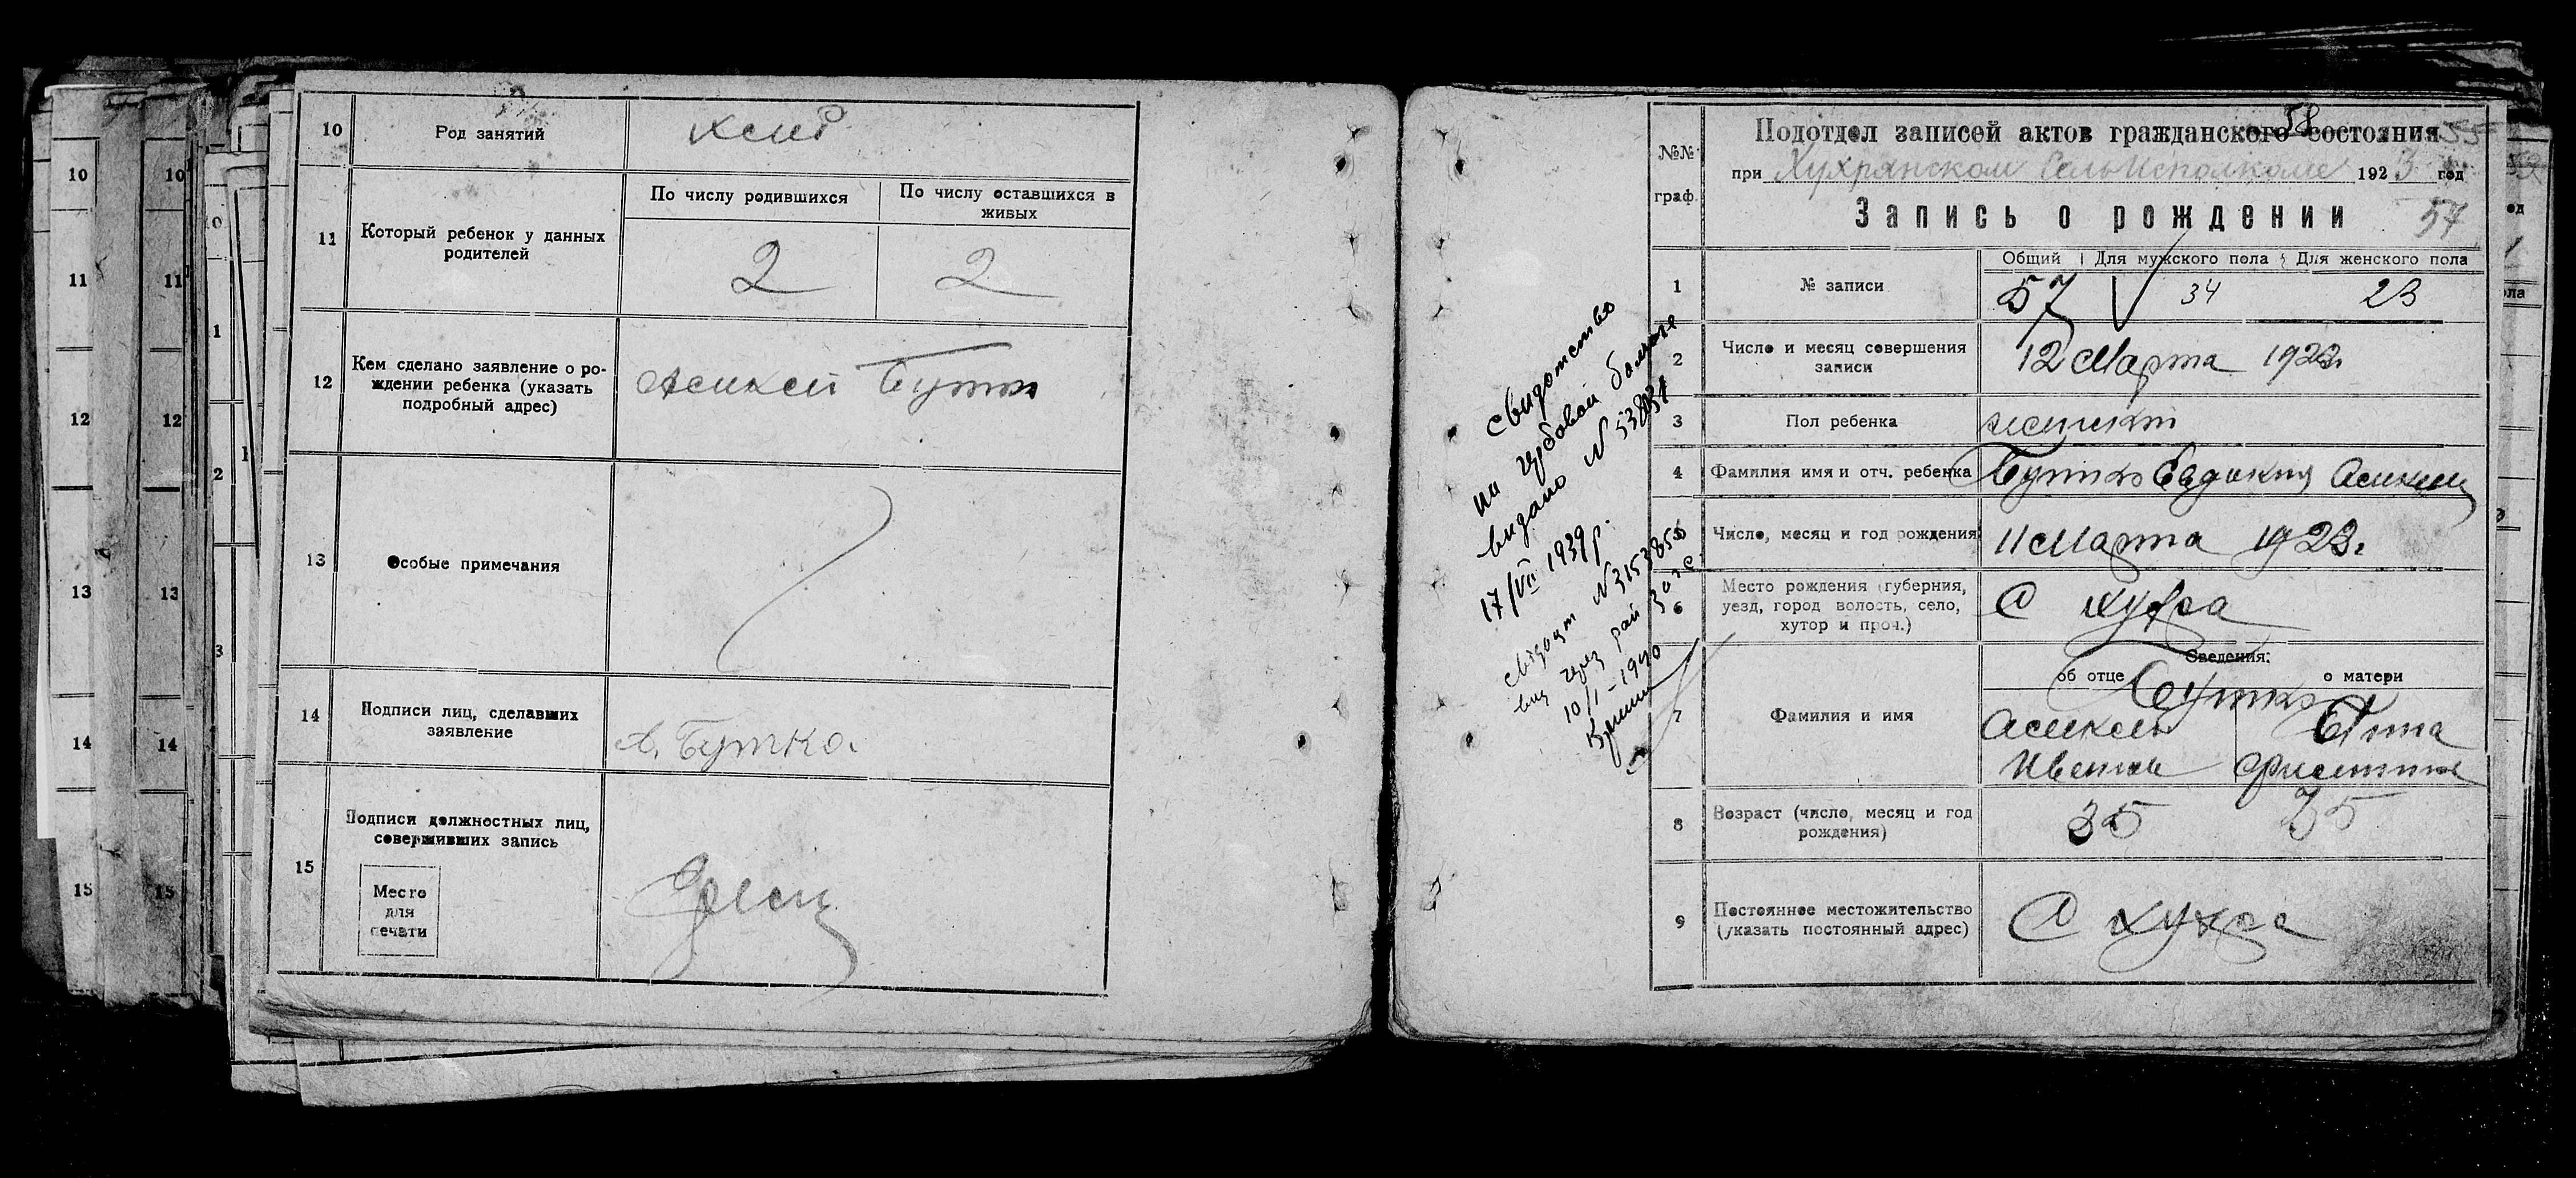 10
Род занятий
хлеб
11
Который ребенок у данных
родителей
По числу родившихся
По числу оставшихся в
живых
2
2
12
Кем сделано заявление о ро-
ждении ребенка (указать
подробный адрес)
Алексей Бутко
13
Особые примечания
14
Подписи лиц, сделавших
заявление
А. Бутко.
15
Подписи должностных лиц,
совершивших запись
Место
для
печати
58
55
№№
граф.
Подотдел записей актов гражданского состояния
при Хухрянском Сельисполкоме 1923 год
Запись о рождении
57
Общий
Для мужского пола
Для женского пола
1
№ записи
57
34
23
2
Число и месяц совершения
записи
12 Марта 1923г
3
Пол ребенка
женский
4
Фамилия имя и отч. ребенка
Бутко Евдокия Алексеев
5
Число, месяц и год рождения
11 Марта 1923г
6
Место рождения (губерния,
уезд, город волость, село,
хутор и проч.)
С Хухра
7
Фамилия и имя
Сведения:
об отце
о матери
Бутко
Алексей
Анна
8
Возраст (число, месяц и год
рождения)
35
35
9
Постоянное местожительство
(указать постоянный адрес)
С Хухра
свидотство
на
видано N
17/VII 1939р.
N
10/I-1940
10
11
12
13
14
15
10
11
12
13
14
15